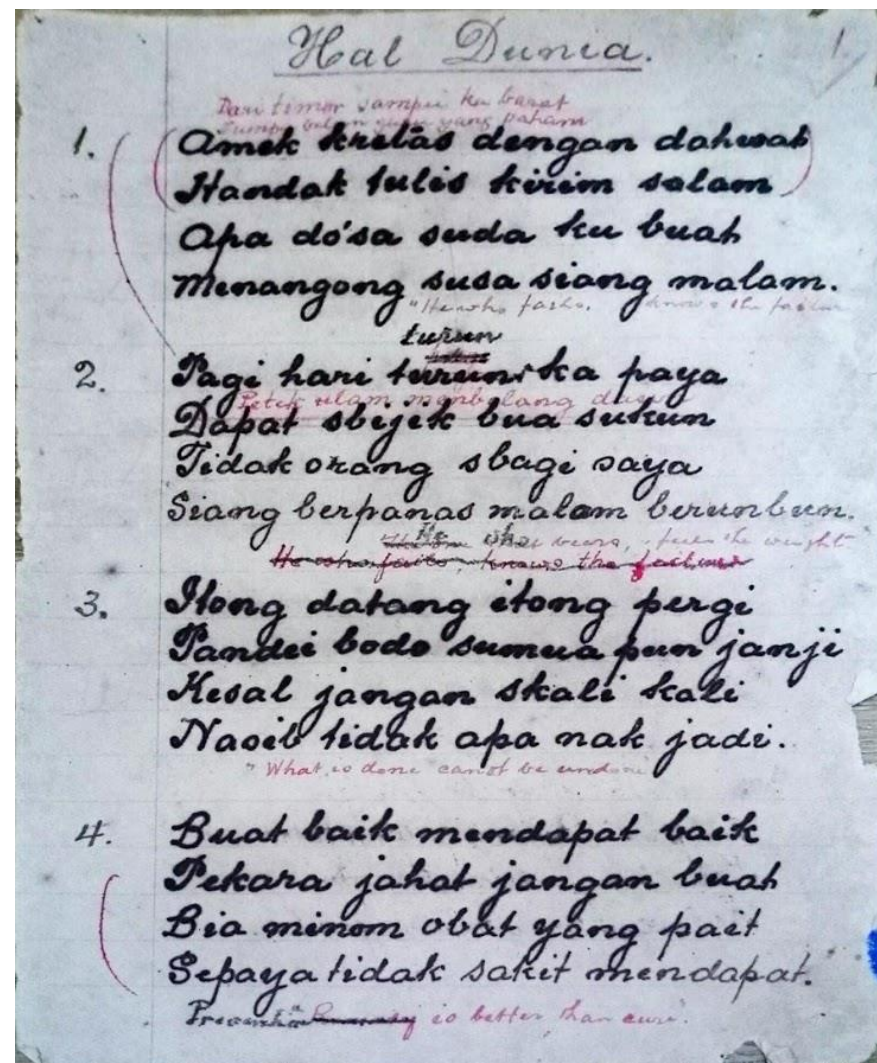 Hal Dunia. 1
Dari timor sampei ka barat
yang paham
1. Amek kretas dengan dahwat
Handak tulis kirim salam
Apa do'sa suda ku buat
Menangong susa siang malam.
"He who fails, knows the failure
turun
2. Pagi hari turun ka paya
Petek ulam
Dapat sbijik bua sukun
Tidak orang sbagi saya
Siang berpanas malam berunbun.
He who wears, feels the weight
He who fails, knows the failure
3. Itong datang itong pergi
Pandei bodo sumua pun janji
Kesal jangan skali kali
Nasib tidak apa nak jadi.
"What is done cannot be undone
4. Buat baik mendapat baik
Pekara jahat jangan buat
Bia minom obat yang pait
Sepaya tidak sakit mendapat.
Prevention is better than cure.